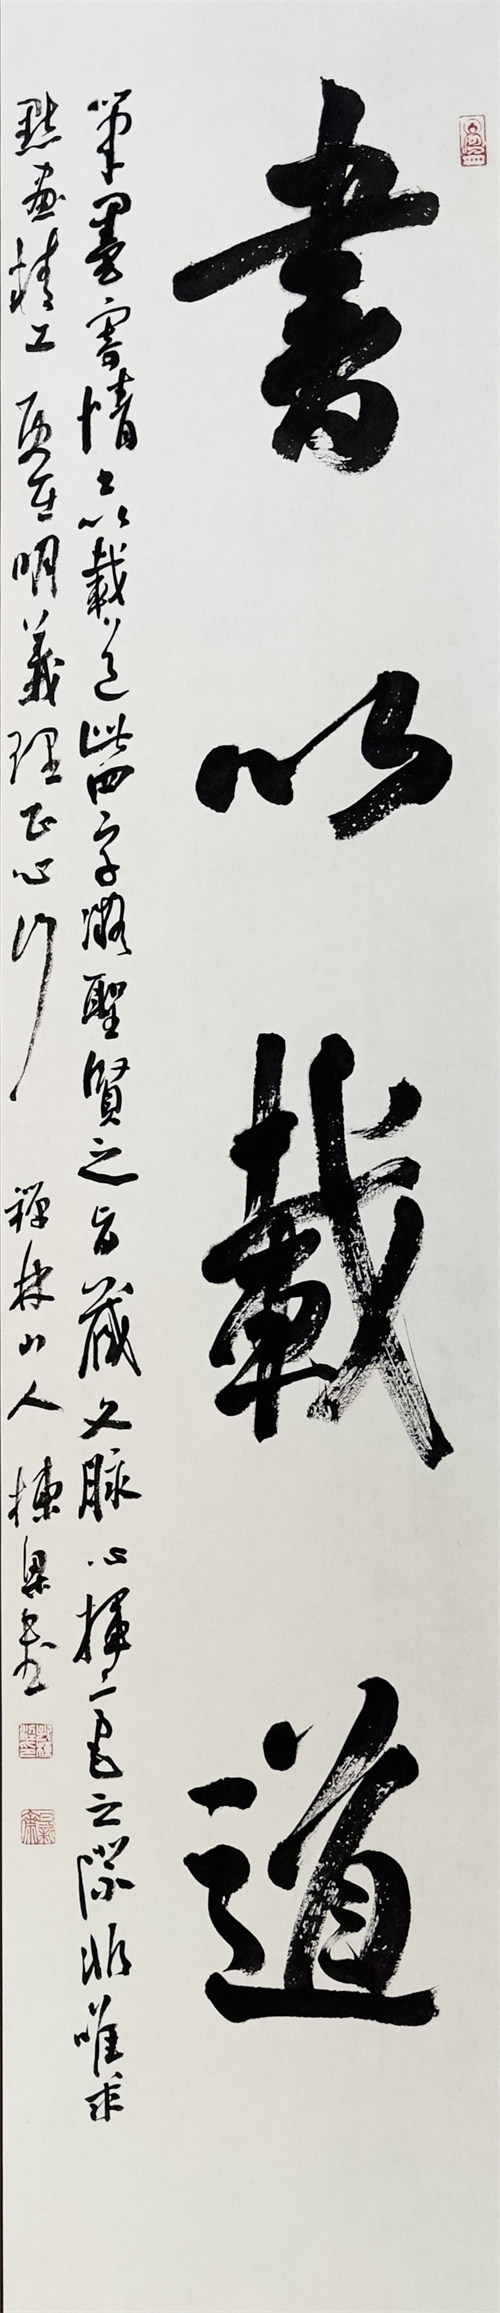 書以載道
筆墨寄情書以載道此四字凝聖賢之旨藏文脉心揮毫之際非唯求
點畫精工更在明義理正心行
禪林山人棟梁書